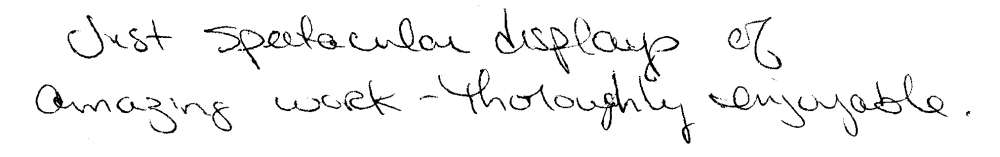 Just spectacular displays of
amazing work - thoroughly enjoyable.